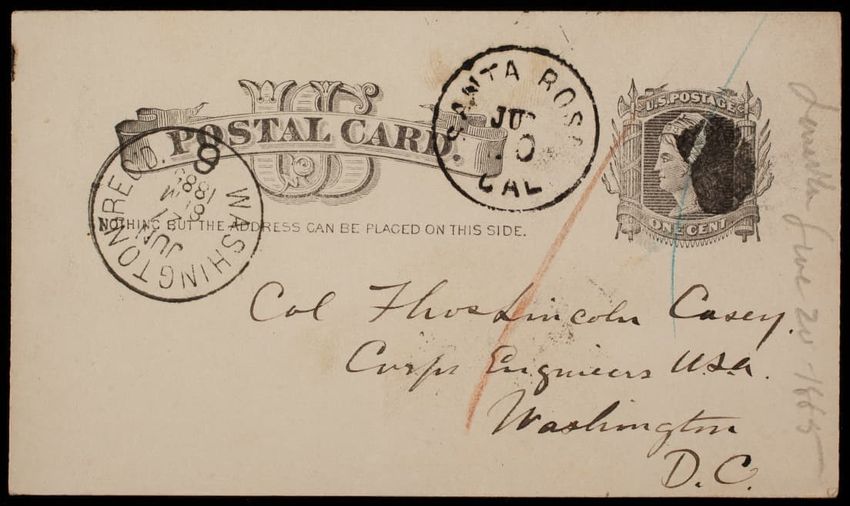 US
POSTAL CARD.
NOTHING BUT THE ADDRESS CAN BE PLACED ON THIS SIDE.
SANTA ROSA
CAL.
U.S. POSTAGE
ONE CENT
WASHINGTON REC'D.
JUN
27
8 PM
188
8
Col Thos Lincoln Casey.
Corps Engineers U.S.A.
Washington
D.C.
June 20 1885